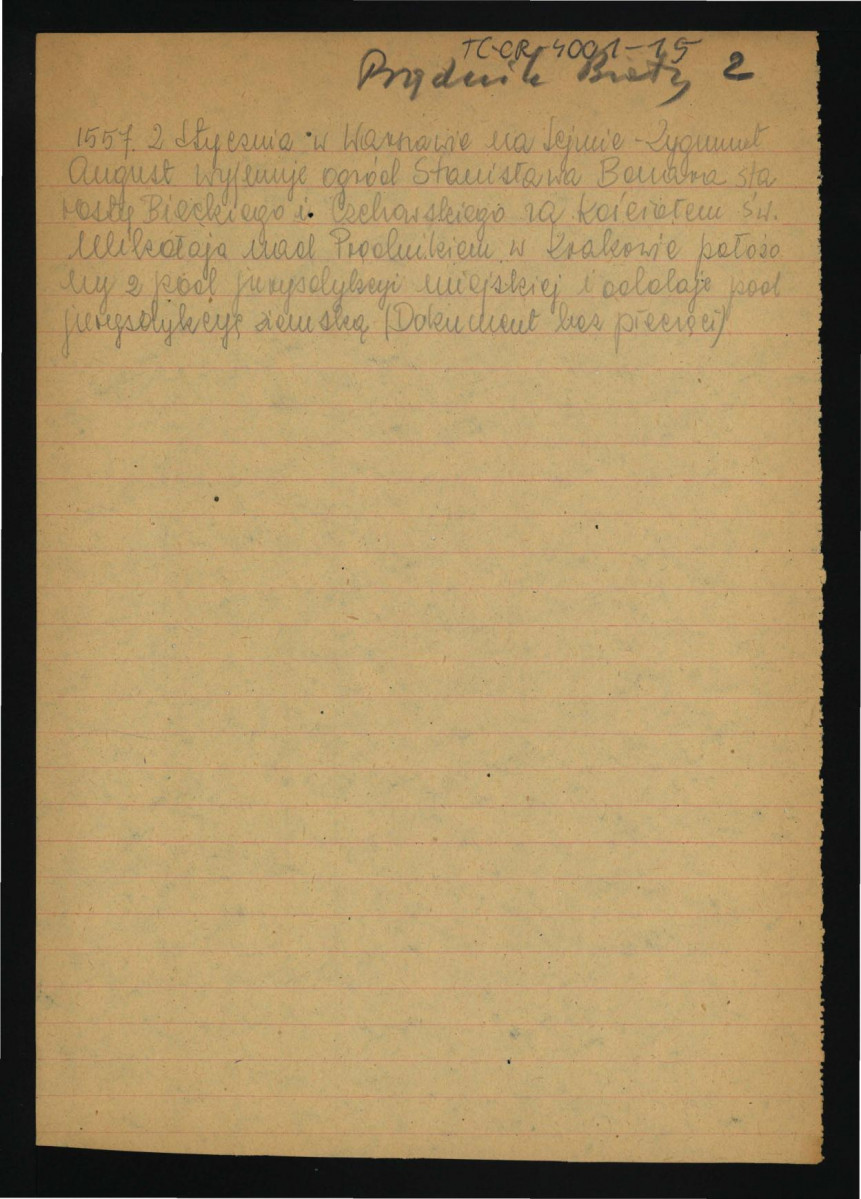 TC-CR-4001-15
Prądnik Biały 2
1557. 2 Stycznia w Warszawie na Sejmie - Zygmunt
August wyjmuje ogród Stanisława Bonara sta
rosty Bieckiego i Czchowskiego za kościołem św.
Mikołaja nad Prądnikiem w Krakowie położo
ny z pod jurysdykcyi miejskiej i oddaje pod
jurysdykcyę ziemską (Dokument bez pieczęci)